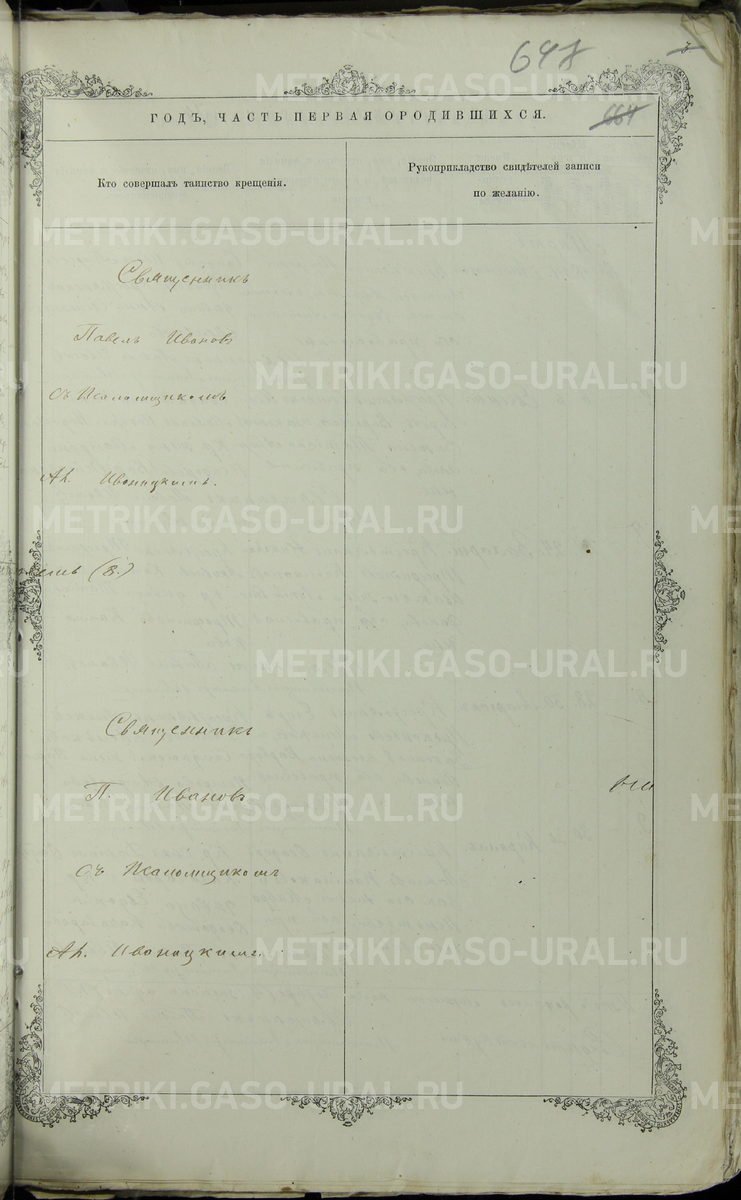 648
664
ГОДЪ, ЧАСТЬ ПЕРВАЯ ОРОДИВШИХСЯ.
Кто совершалъ таинство крещенія.
Рукоприкладство свидѣтелей записи
по желанію.
Священникъ
Павелъ Ивановъ
съ Псаломщикомъ
Ал. Ивановскимъ.
(8.)
Священникъ
П. Ивановъ
съ Псаломщикомъ
METRIKI.GASO-URAL.RU